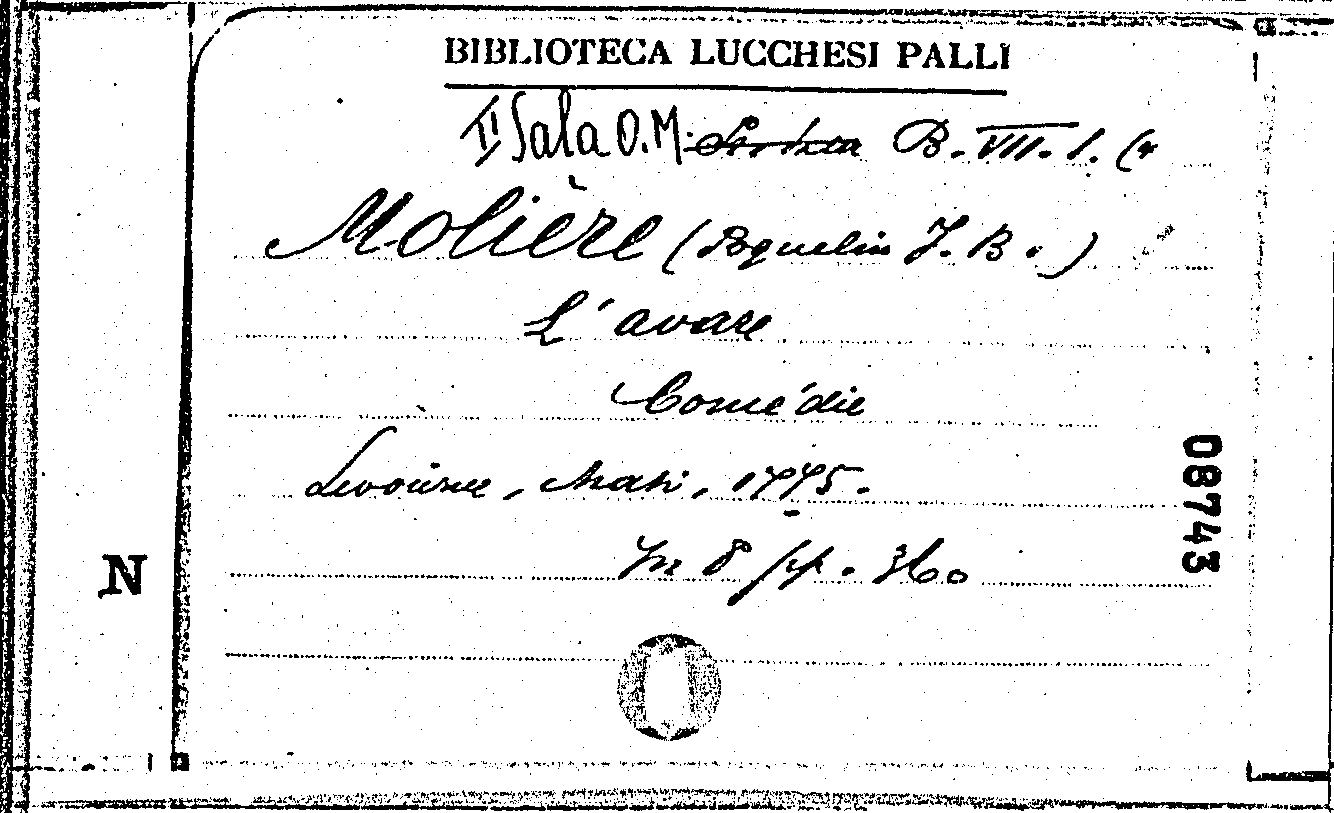 BIBLIOTECA LUCCHESI PALLI
II Sala O.M. B. VII. 1. (4
Molière (Poquelin J. B.)
L'avare
Comédie
Livourne, Masi, 1775.
In 8 pp. 360
N
08743